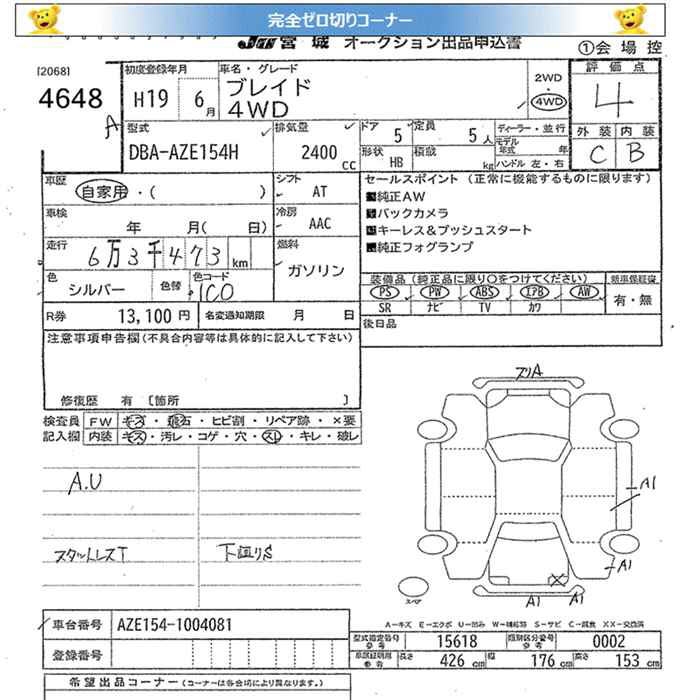 完全ゼロ切りコーナー
JU宮城 オークション出品申込書
①会場控
[2068]
4648
A
初度登録年月
H19 6月
車名・グレード
ブレイド
4WD
2WD
・
4WD
評価点
4
外装 内装
C B
型式
DBA-AZE154H
排気量
2400 cc
ドア 5
定員 5人
形状 HB
積載 kg
ディーラー・並行
モデル年式 年
ハンドル 左・右
車歴
自家用・( )
シフト
AT
車検
年 月( 日)
冷房
AAC
走行
6万3千473km
燃料
ガソリン
色
シルバー
色替
色コード
1C0
R券 13,100円
名変通知期限 月 日
セールスポイント (正常に機能するものに限ります)
■純正AW
■バックカメラ
■キーレス&プッシュスタート
■純正フォグランプ
装備品(純正品に限り○をつけてください)
PS PW ABS エアB AW
SR ナビ TV カワ
新車保証書
有・無
後日品
注意事項申告欄(不具合内容等は具体的に記入して下さい)
修復歴 有 〔箇所 〕
検査員記入欄
FW キズ・飛石・ヒビ割・リペア跡・×要
内装 キズ・汚レ・コゲ・穴・スレ・キレ・破レ
A.U
スタットレスT
下廻りS
A1
A1
A1
A1
スペア
A－キズ E－エクボ U－凹み W－補修跡 S－サビ C－腐食 XX－交換済
車台番号 AZE154-1004081
登録番号
型式指定番号 参考 15618
類別区分番号 参考 0002
車検証明用 参考 長さ 426cm 幅 176cm 高さ 153cm
希望出品コーナー (コーナーは各会場により異なります。)